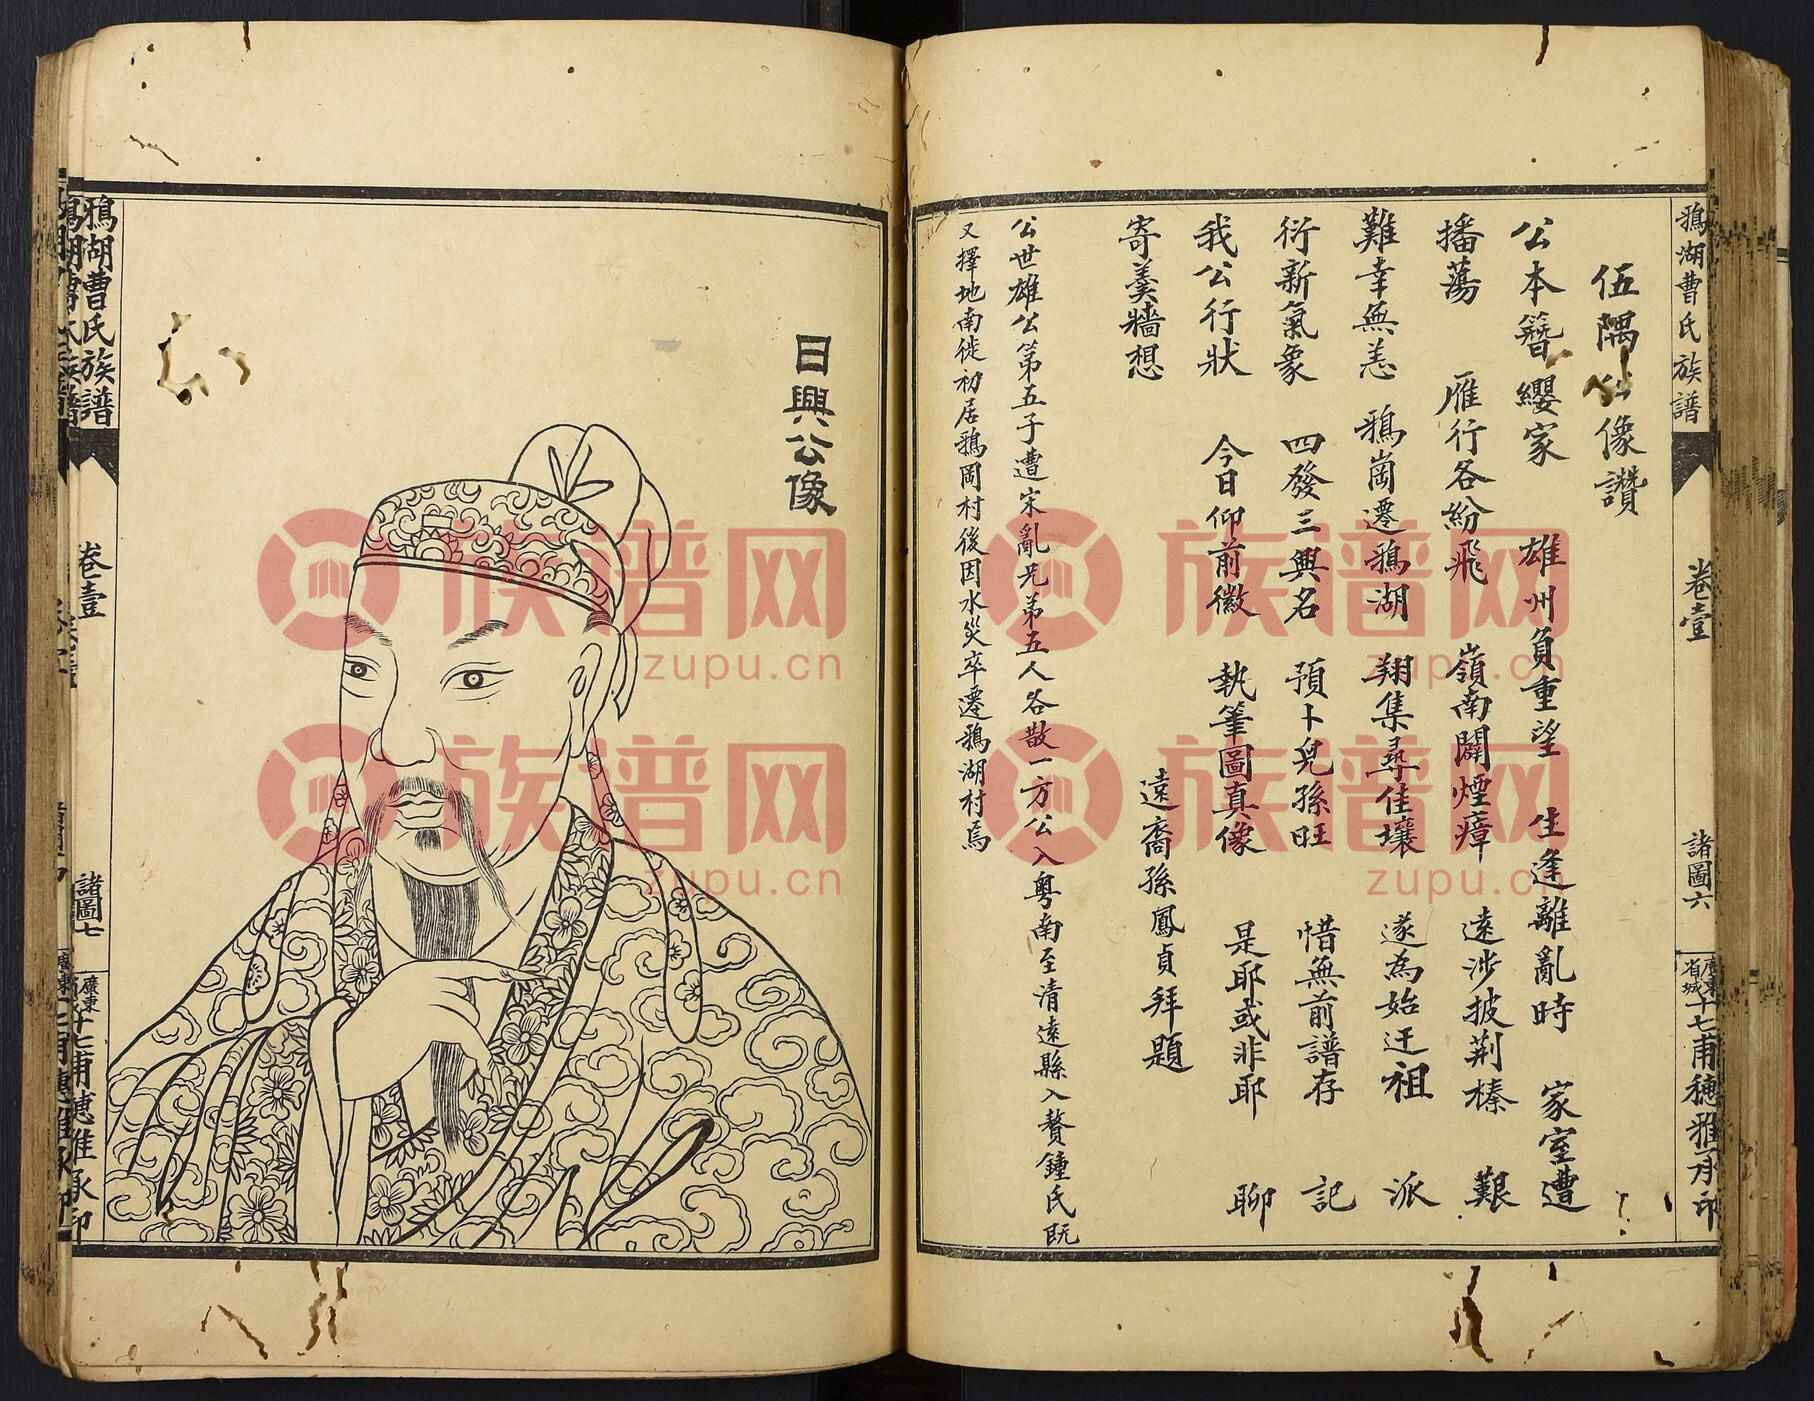 鴉湖曹氏族譜
卷壹
諸圖六
廣東省城十七甫穗雅承印
伍隅公像讚
公本簪纓家 雄州負重望 生逢離亂時 家室遭
播蕩 雁行各紛飛 嶺南闢煙瘴 遠涉披荆榛 艱
難幸無恙 鴉崗遷鴉湖 翔集尋佳壤 遂為始迁祖 派
衍新氣象 四發三興名 預卜兒孫旺 惜無前譜存 記
我公行狀 今日仰前徽 執筆圖真像 是耶或非耶 聊
寄羹牆想
遠裔孫鳳貞拜題
公世雄公第五子遭宋亂兄弟五人各散一方公入粤南至清遠縣入贅鍾氏既
又擇地南徙初居鴉岡村後因水災卒遷鴉湖村焉
日興公像
鴉湖曹氏族譜
卷壹
諸圖七
廣東
十七甫穗雅承印
族谱网
zupu.cn
族谱网
zupu.cn
族谱网
zupu.cn
族谱网
zupu.cn